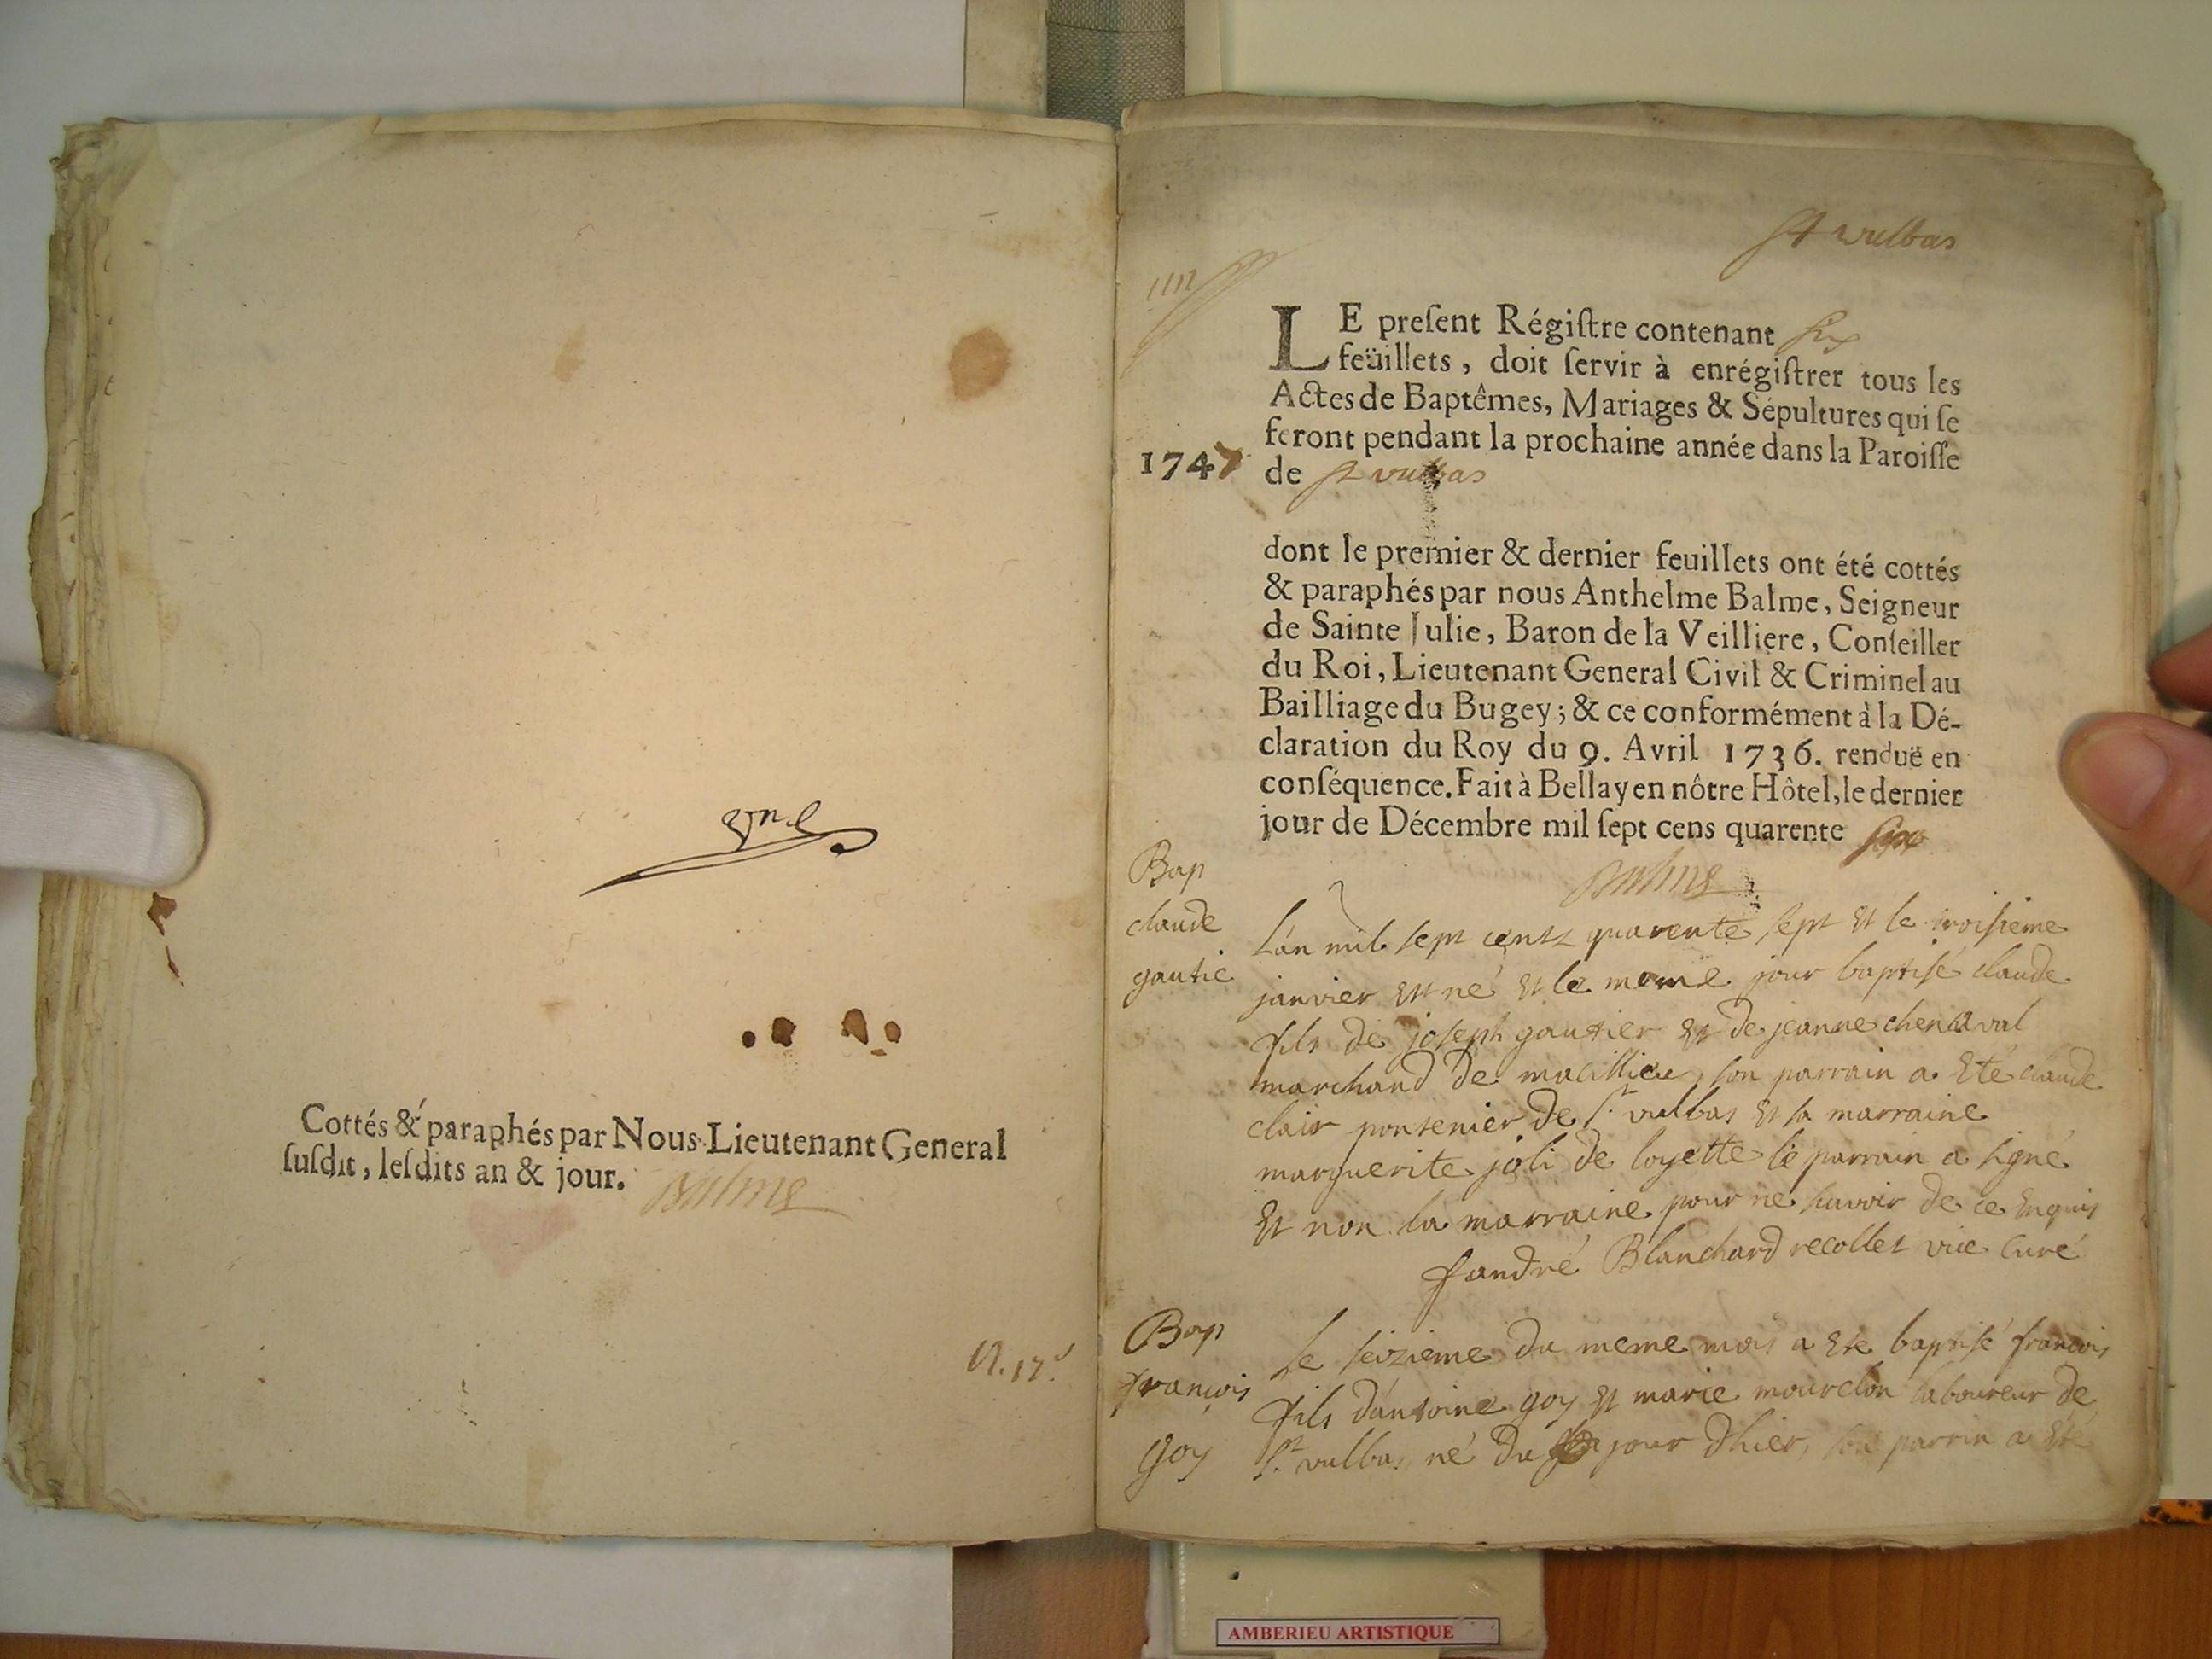 Cottés & paraphés par Nous Lieutenant General
susdit, lesdits an & jour. Balme
St vulbas
LE present Régistre contenant six
feüillets, doit servir à enrégistrer tous les
Actes de Baptêmes, Mariages & Sépultures qui se
feront pendant la prochaine année dans la Paroisse
1747 de St vulbas
dont le premier & dernier feuillets ont été cottés
& paraphés par nous Anthelme Balme, Seigneur
de Sainte Julie, Baron de la Veilliere, Conseiller
du Roi, Lieutenant General Civil & Criminel au
Bailliage du Bugey; & ce conformément à la Dé-
claration du Roy du 9. Avril 1736. renduë en
conséquence. Fait à Bellay en nôtre Hôtel, le dernier
jour de Décembre mil sept cens quarente six
Balme
Bap
claude
gautie
L'an mil sept cents quarente sept et le troisieme
janvier est né et le meme jour baptisé claude
fils de joseph gautier et de jeanne chenaval
marchand de macillieu, son parrain a eté claude
clair pontenier de St vulbas et sa marraine
marguerite joli de loyette le parrain a signé
et non la marraine pour ne savoir de ce enquis
f andré Blanchard recollet vice curé
Bap
françois
Goy
Le seizieme du meme mois a ete baptisé françois
fils d'antoine goy et marie mourelon laboureur de
St vulbas né du jour d'hier, son parrin a eté
AMBERIEU ARTISTIQUE